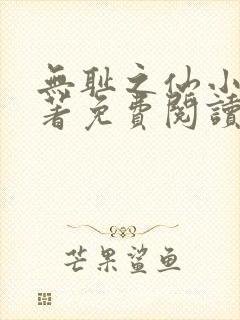 無耻之仙小
著免費閱讀
芒果鲨鱼